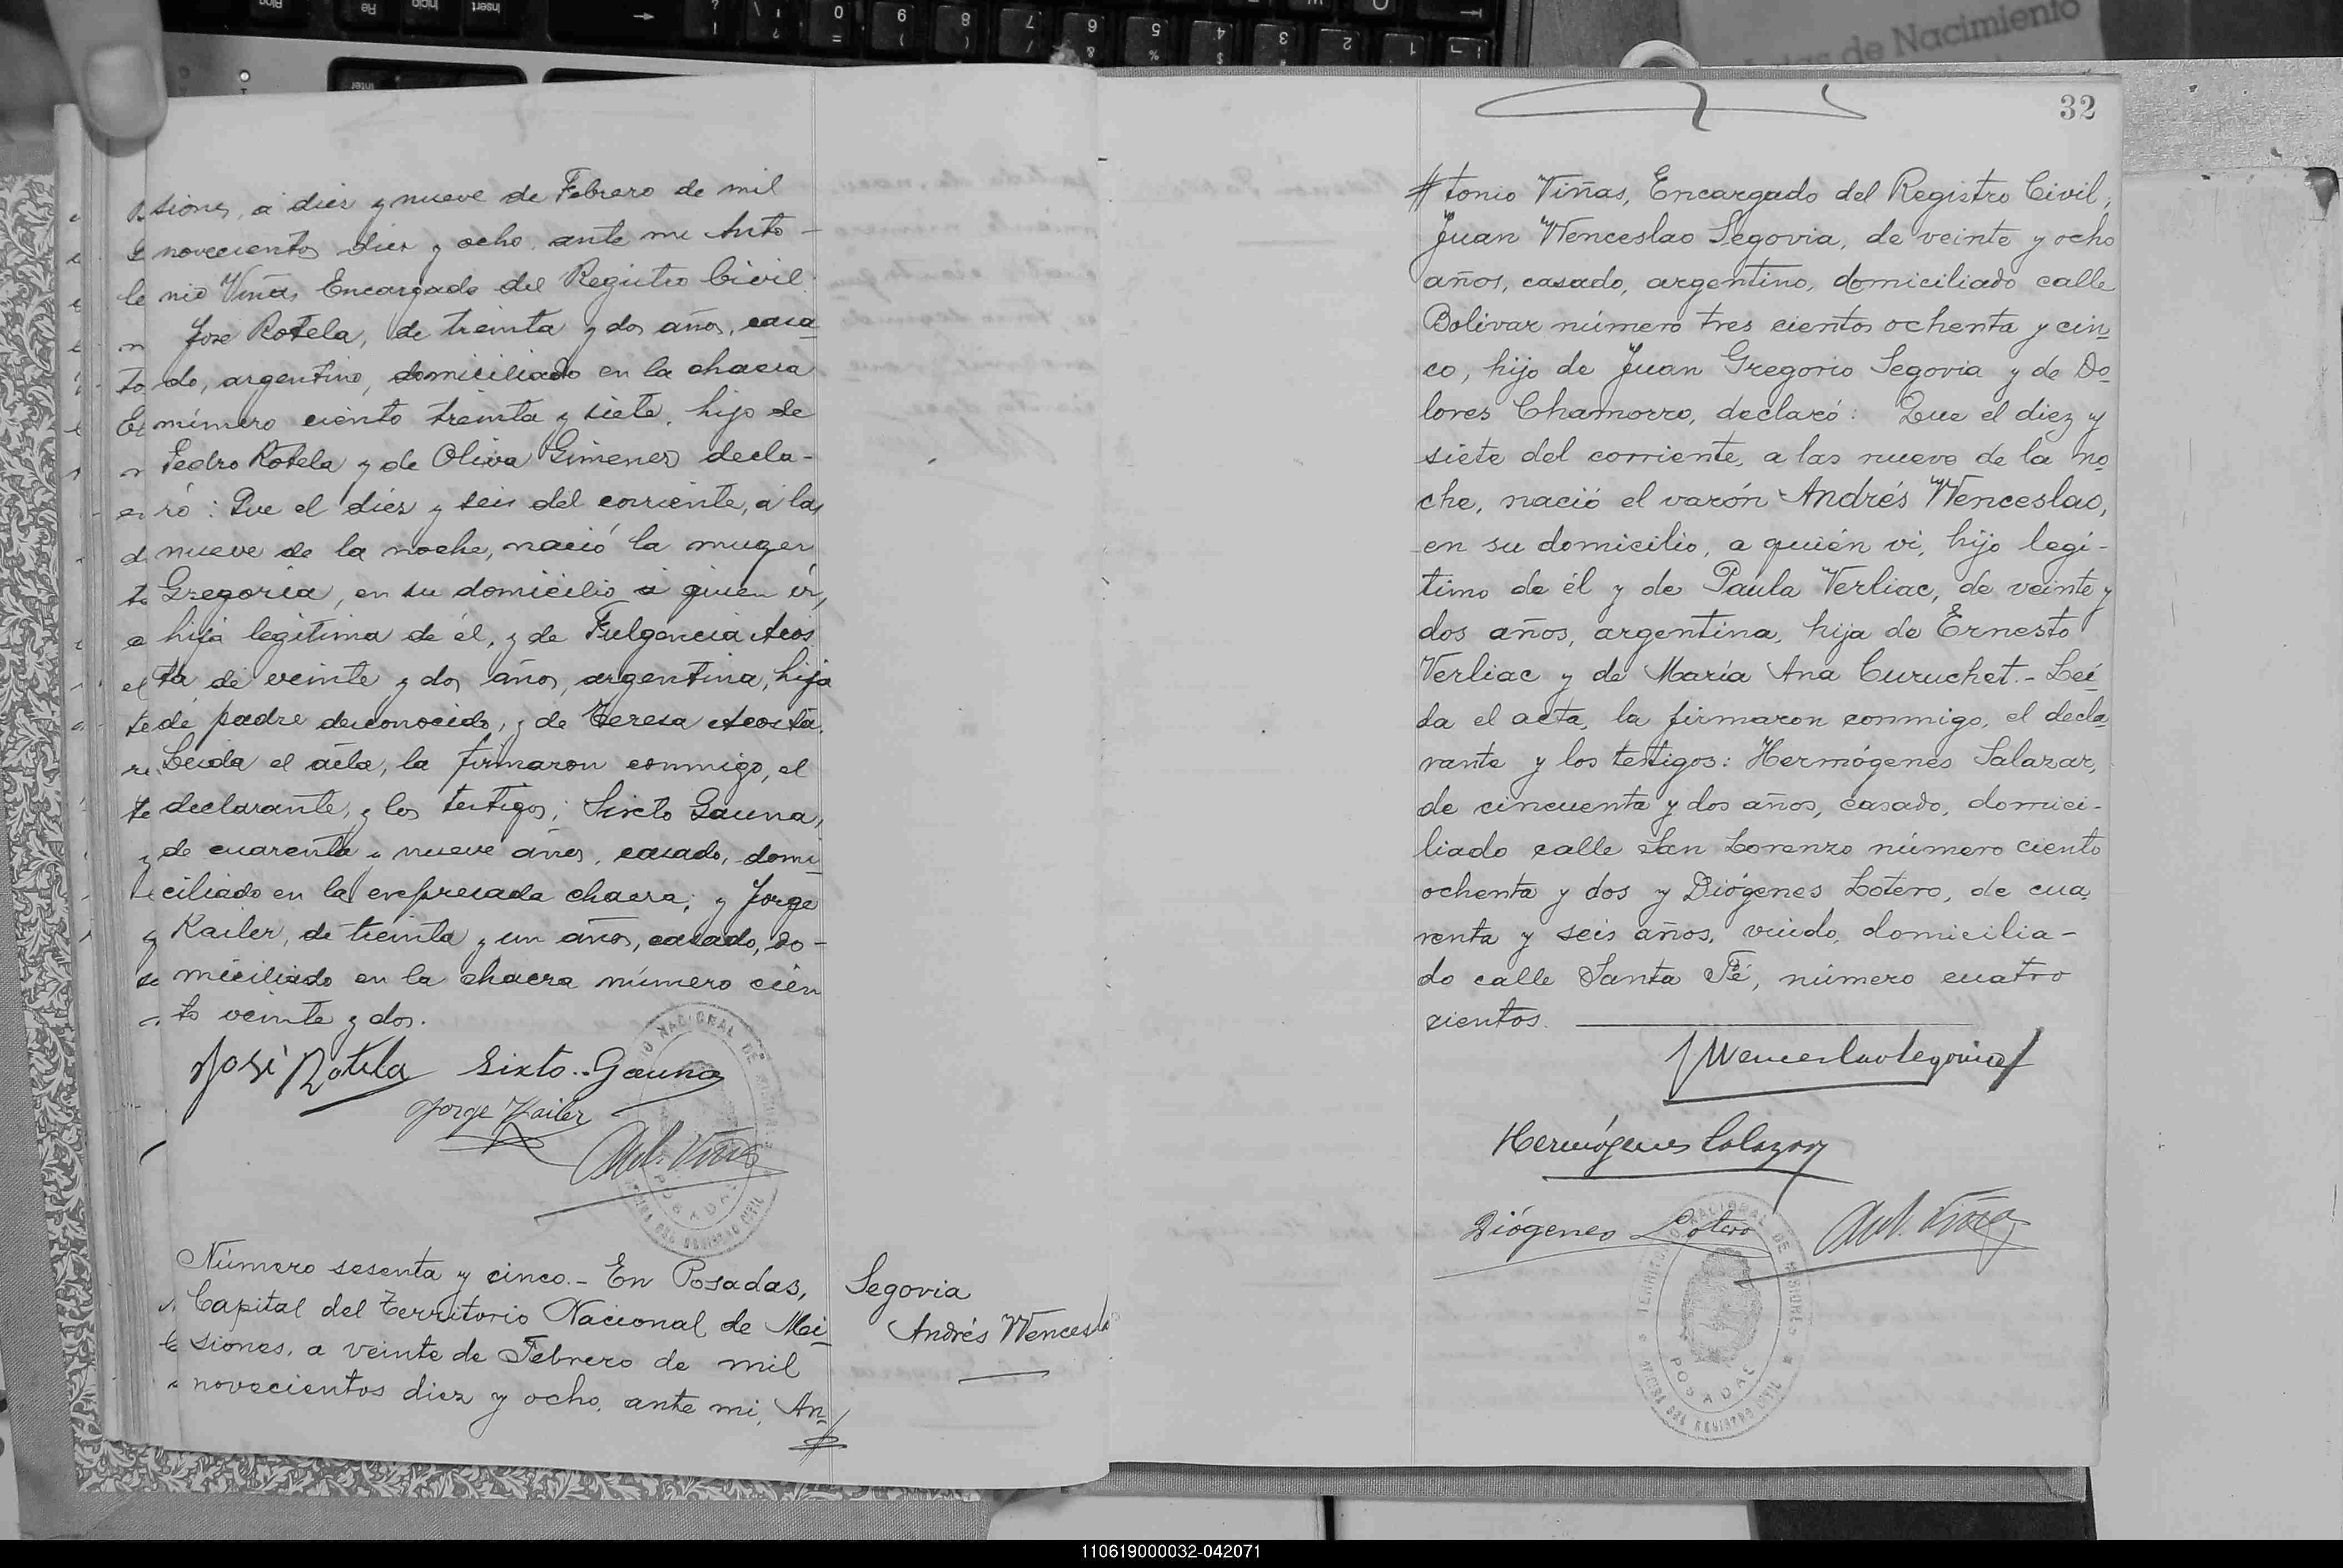 siones, a diez y nueve de Febrero de mil
novecientos diez y ocho, ante mi Anto-
nio Viñas Encargado del Registro Civil
José Rotela, de treinta y dos años, casa
do, argentino, domiciliado en la chacra
número ciento treinta y siete, hijo de
Pedro Rotela y de Oliva Gimenez decla-
ró: Que el diez y seis del corriente, a las
nueve de la noche, nació la muger
Gregoria, en su domicilio a quien vi,
hija legitima de él, y de Fulgencia Acos
ta de veinte y dos años, argentina, hija
de padre desconocido, y de Teresa Acosta.
Leida el acta, la firmaron conmigo, el
declarante, y los testigos; Sixto Gauna,
de cuarenta y nueve años, casado, domi
ciliado en la expresada chacra; y Jorge
Kailer, de treinta y un años, casado, do-
miciliado en la chacra número cien
to veinte y dos.
José Rotela Sixto Gauna
Jorge Kailer
Ant. Viñas
Número sesenta y cinco.- En Posadas,
Capital del Territorio Nacional de Mi-
siones, a veinte de Febrero de mil
novecientos diez y ocho, ante mi, An-
Segovia
Andrés Wencesla
32
tonio Viñas, Encargado del Registro Civil,
Juan Wenceslao Segovia, de veinte y ocho
años, casado, argentino, domiciliado calle
Bolivar número tres cientos ochenta y cin-
co, hijo de Juan Gregorio Segovia y de Do-
lores Chamorro, declaró: Que el diez y
siete del corriente, a las nueve de la no-
che, nació el varón Andrés Wenceslao,
en su domicilio, a quién vi, hijo legi-
timo de él y de Paula Verliac, de veinte y
dos años, argentina, hija de Ernesto
Verliac y de María Ana Curuchet.- Leí-
da el acta, la firmaron conmigo, el decla-
rante y los testigos: Hermógenes Salazar,
de cincuenta y dos años, casado, domici-
liado calle San Lorenzo número ciento
ochenta y dos y Diógenes Lotero, de cua-
renta y seis años, viudo, domicilia-
do calle Santa Fé, número cuatro
cientos.
J Wenceslao Segovia
Hermógenes Salazar
Diógenes Lotero Ant. Viñas
TERRITORIO NACIONAL DE MISIONES
POSADAS
OFICINA DEL REGISTRO CIVIL
110619000032-042071